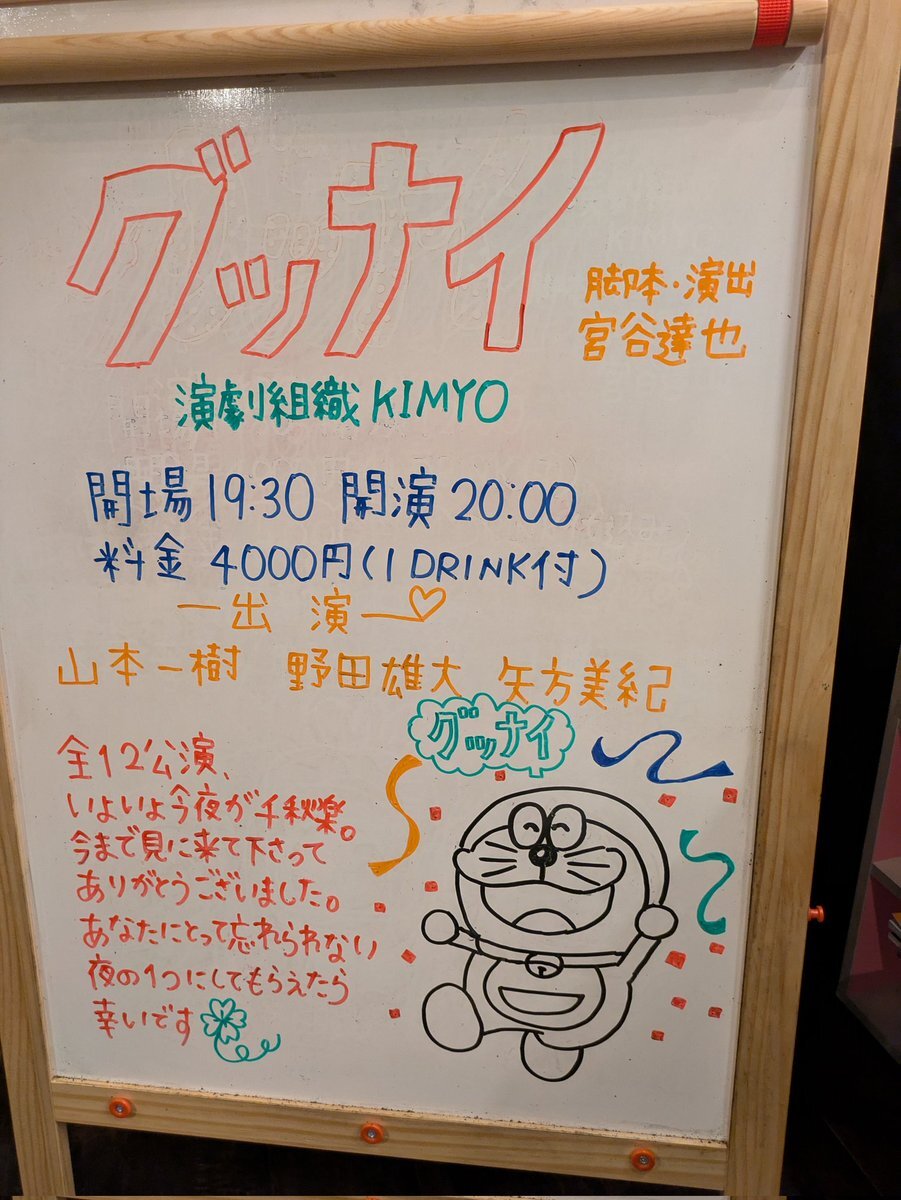 グッナイ
脚本・演出
宮谷達也
演劇組織KIMYO
開場19:30 開演20:00
料金 4000円(1DRINK付)
ー出 演ー♡
山本一樹 野田雄大 矢方美紀
グッナイ
全12公演、
いよいよ今夜が千秋楽。
今まで見に来て下さって
ありがとうございました。
あなたにとって忘れられない
夜の1つにしてもらえたら
幸いです